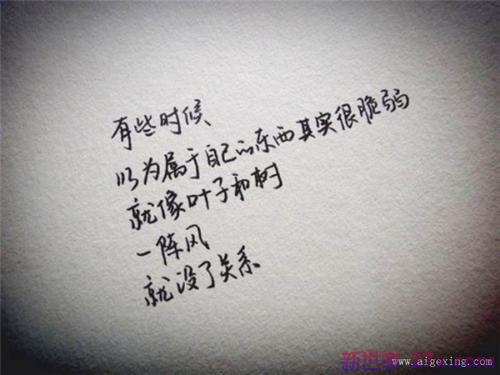 有些时候
以为属于自己的东西其实很脆弱
就像叶子和树
一阵风
就没了关系
新世纪
www.aigexing.com